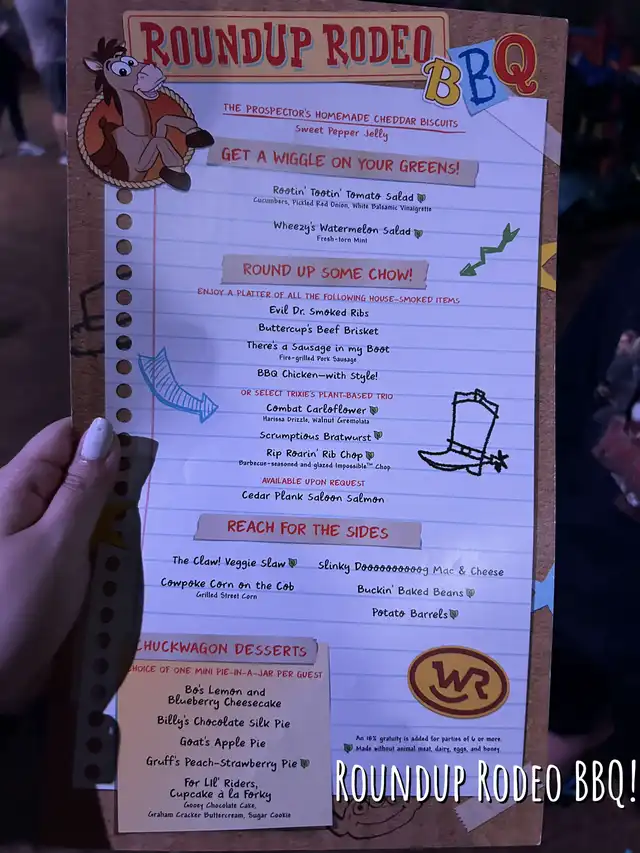 ROUNDUP RODEO
BBQ
THE PROSPECTOR'S HOMEMADE CHEDDAR BISCUITS
SWEET PEPPER JELLY
GET A WIGGLE ON YOUR GREENS!
ROOTIN' TOOTIN' TOMATO SALAD
CUCUMBERS, PICKLED RED ONION, WHITE BALSAMIC VINAIGRETTE
WHEEZY'S WATERMELON SALAD
FRESH-TORN MINT
ROUND UP SOME CHOW!
ENJOY A PLATTER OF ALL THE FOLLOWING HOUSE-SMOKED ITEMS
EVIL DR. SMOKED RIBS
BUTTERCUP'S BEEF BRISKET
THERE'S A SAUSAGE IN MY BOOT
FIRE-GRILLED PORK SAUSAGE
BBQ CHICKEN—WITH STYLE!
OR SELECT TRIXIE'S PLANT-BASED TRIO
COMBAT CARLOFLOWER
HARISSA DRIZZLE, WALNUT GREMOLATA
SCRUMPTIOUS BRATWURST
RIP ROARIN' RIB CHOP
BARBECUE-SEASONED AND GLAZED IMPOSSIBLE™ CHOP
AVAILABLE UPON REQUEST
CEDAR PLANK SALOON SALMON
REACH FOR THE SIDES
THE CLAW! VEGGIE SLAW
SLINKY DOOOOOOOOOOG MAC & CHEESE
COWPOKE CORN ON THE COB
GRILLED STREET CORN
BUCKIN' BAKED BEANS
POTATO BARRELS
CHUCKWAGON DESSERTS
CHOICE OF ONE MINI PIE-IN-A-JAR PER GUEST
BO'S LEMON AND
BLUEBERRY CHEESECAKE
BILLY'S CHOCOLATE SILK PIE
GOAT'S APPLE PIE
GRUFF'S PEACH-STRAWBERRY PIE
FOR LIL' RIDERS,
CUPCAKE À LA FORKY
GOOEY CHOCOLATE CAKE,
GRAHAM CRACKER BUTTERCREAM, SUGAR COOKIE
WR
AN 18% GRATUITY IS ADDED FOR PARTIES OF 6 OR MORE.
MADE WITHOUT ANIMAL MEAT, DAIRY, EGGS, AND HONEY.
ROUNDUP RODEO BBQ!